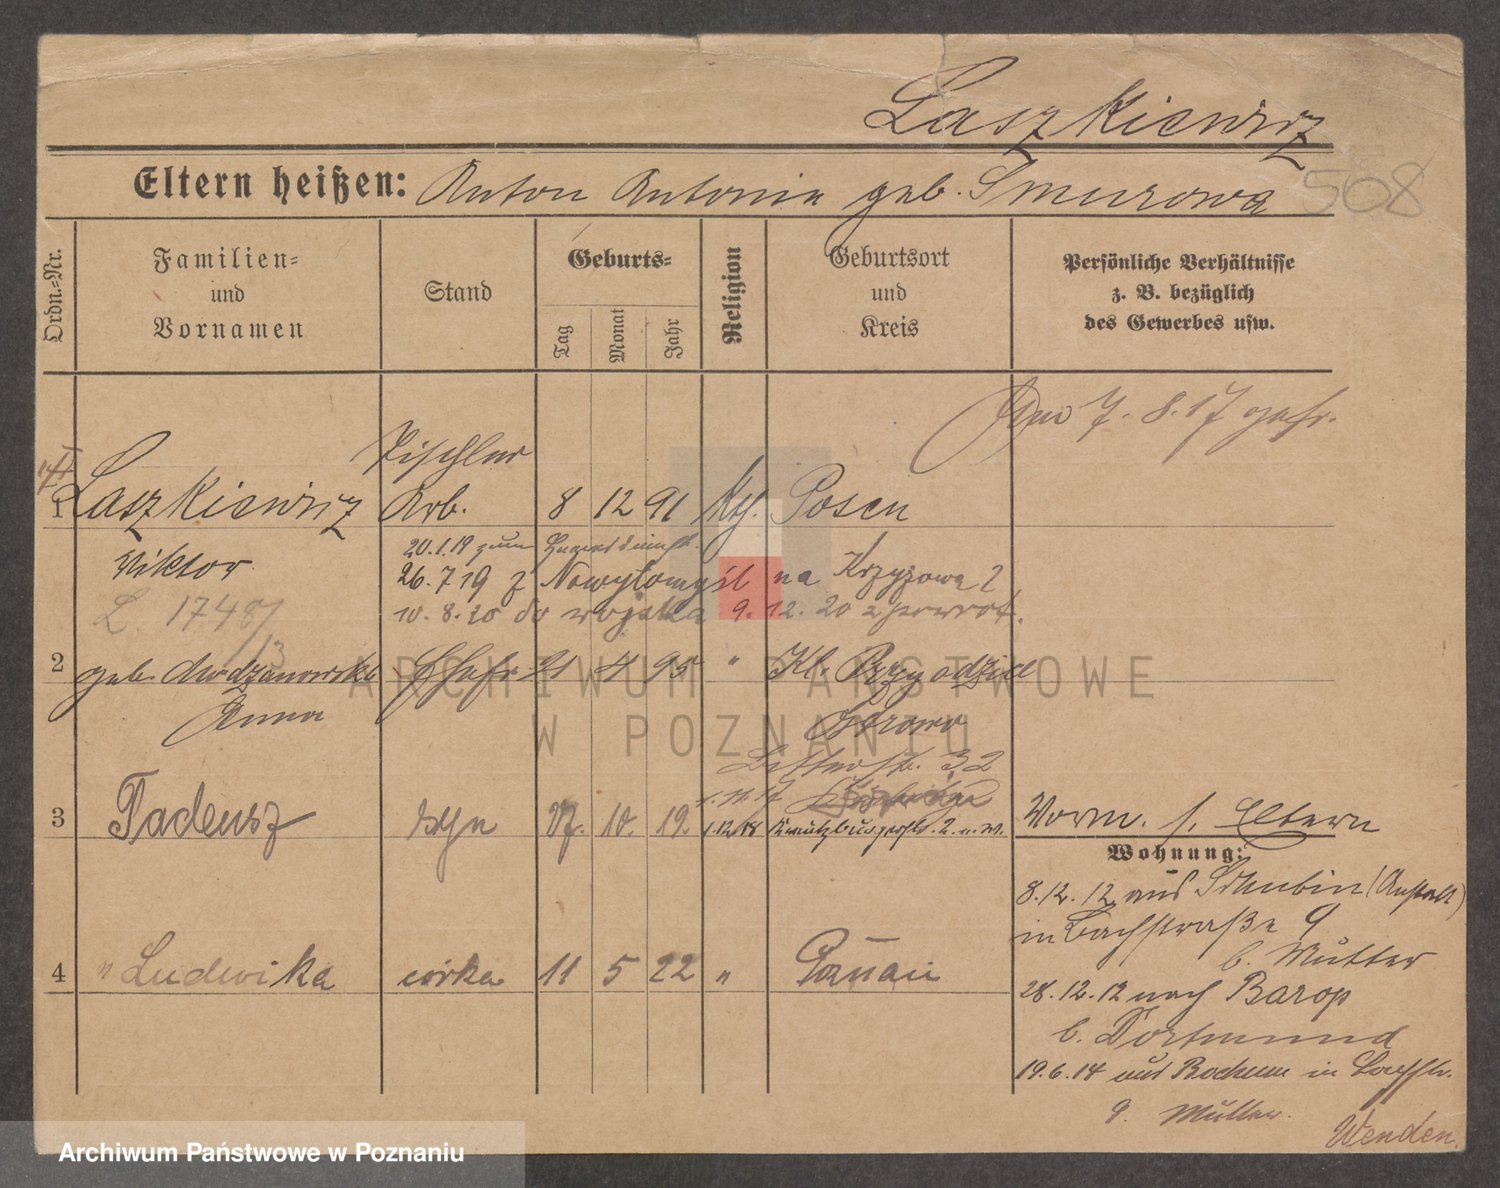 Laszkiewicz
568
Eltern heißen: Anton Antonie geb. Smurowa
Ordn.-Nr.
Familien-
und
Vornamen
Stand
Geburts-
Tag
Monat
Jahr
Religion
Geburtsort
und
Kreis
Persönliche Verhältnisse
z. B. bezüglich
des Gewerbes usw.
7. 8. 17
Tischler
1 Laszkiewicz Arb. 8 12 91 Posen
Viktor
20.1.19 zum
26. 7 19 z Nowytomyśl na Krzyżową 2
L. 1748/13
10. 8. 20 do wojska 9. 12. 20 z powrot.
2 geb. Modzanowska Ehefr. 21 4 95 " Kl. Przygodzice
Anna
Ostrowo
32
3 Tadeusz syn 27. 10. 19.
1.12.18 Kreuzburgerstr. 2 u. W.
Vorm. s. Eltern
Wohnung:
8.12.12 aus Schubin (Anstalt)
in Bachstraße 9
b. Mutter
4 " Ludwika córka 11 5 22 " Poznań
28.12.12 nach Barop
b. Dortmund
19.6.14 aus Bochum in Bachstr.
9 Mutter.
Wenden.
ARCHIWUM PAŃSTWOWE
W POZNANIU
Archiwum Państwowe w Poznaniu